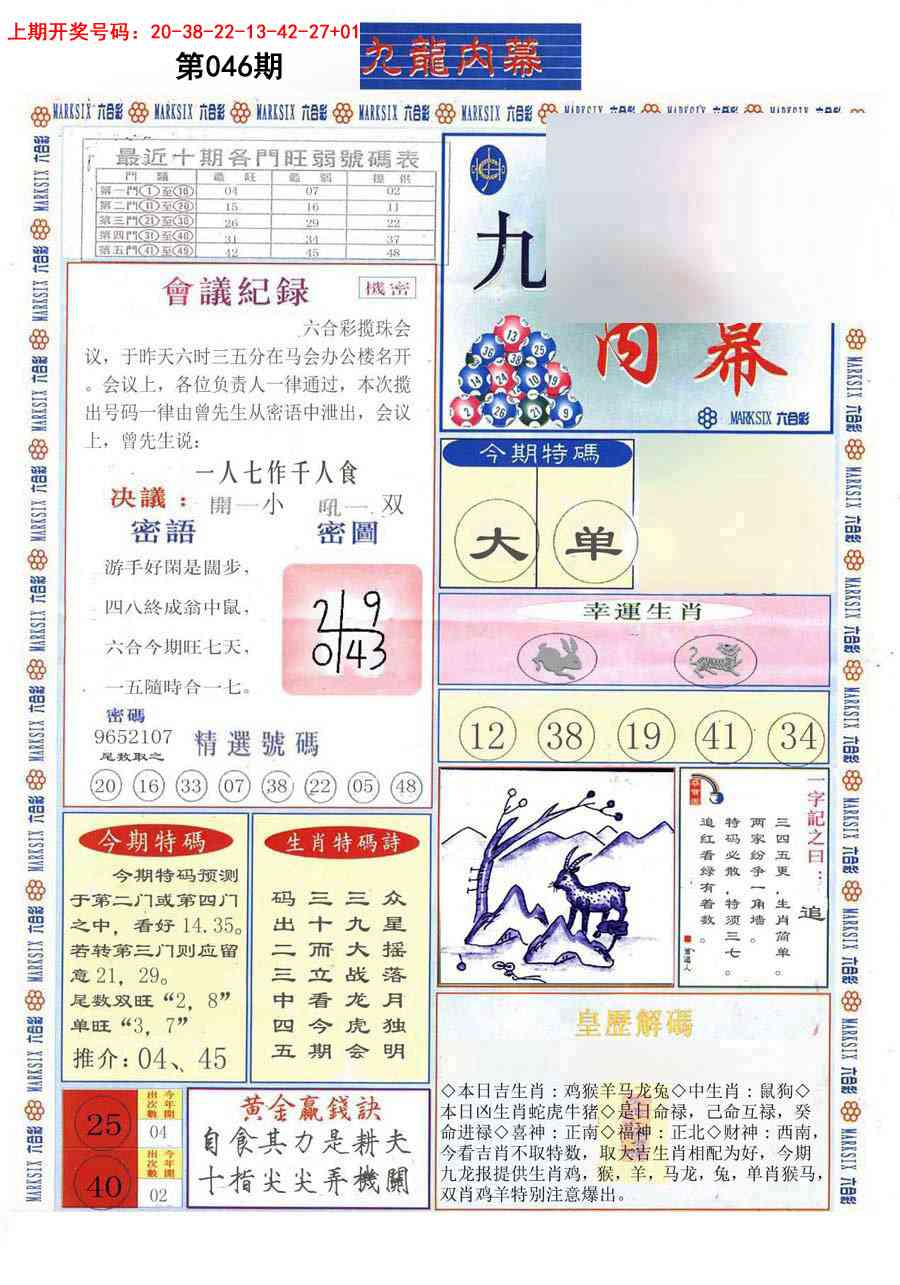 上期开奖号码：20-38-22-13-42-27+01
第046期
九龍内幕
MARKSIX 六合彩
最近十期各門旺弱號碼表
門 類 最 旺 最 弱 提 供
第一門①至⑩ 04 07 02
第二門⑪至⑳ 15 16 11
第三門㉑至㉚ 26 29 22
第四門㉛至㊵ 31 34 37
第五門㊶至㊾ 42 45 48
九
内幕
13
36 38 25
14 24 10 19
2 26 21 9
MARKSIX 六合彩
會議紀录
機密
六合彩揽珠会
议，于昨天六时三五分在马会办公楼名开
。会议上，各位负责人一律通过，本次揽
出号码一律由曾先生从密语中泄出，会议
上，曾先生说：
一人七作千人食
决議：開一小 吼一双
密語
游手好閑是闊步，
四八終成翁中鼠，
六合今期旺七天，
一五隨時合一七。
密圖
2 9
0 43
密碼
9652107
尾数取之
精選號碼
20 16 33 07 38 22 05 48
今期特碼
大 单
幸運生肖
12 38 19 41 34
今期特碼
今期特码预测
于第二门或第四门
之中，看好14.35。
若转第三门则应留
意21，29。
尾数双旺“2，8”
单旺“3，7”
推介：04、45
生肖特碼詩
众星摇落月独明
三九大战龙虎会
三十而立看今期
码出二三中四五
一字記之曰：追
三四五更，生肖简单。
两家纷争一角墙。
特码必散，特须三七。
追红看绿有着数。
25
今年開
出次數
04
40
今年開
出次數
02
黄金贏錢訣
自食其力是耕夫
十指尖尖弄機關
皇歷解碼
◇本日吉生肖：鸡猴羊马龙兔◇中生肖：鼠狗◇
本日凶生肖蛇虎牛猪◇是日命禄，己命互禄，癸
命进禄◇喜神：正南◇福神：正北◇财神：西南，
今看吉肖不取特数，取大吉生肖相配为好，今期
九龙报提供生肖鸡，猴，羊，马龙，兔，单肖猴马，
双肖鸡羊特别注意爆出。